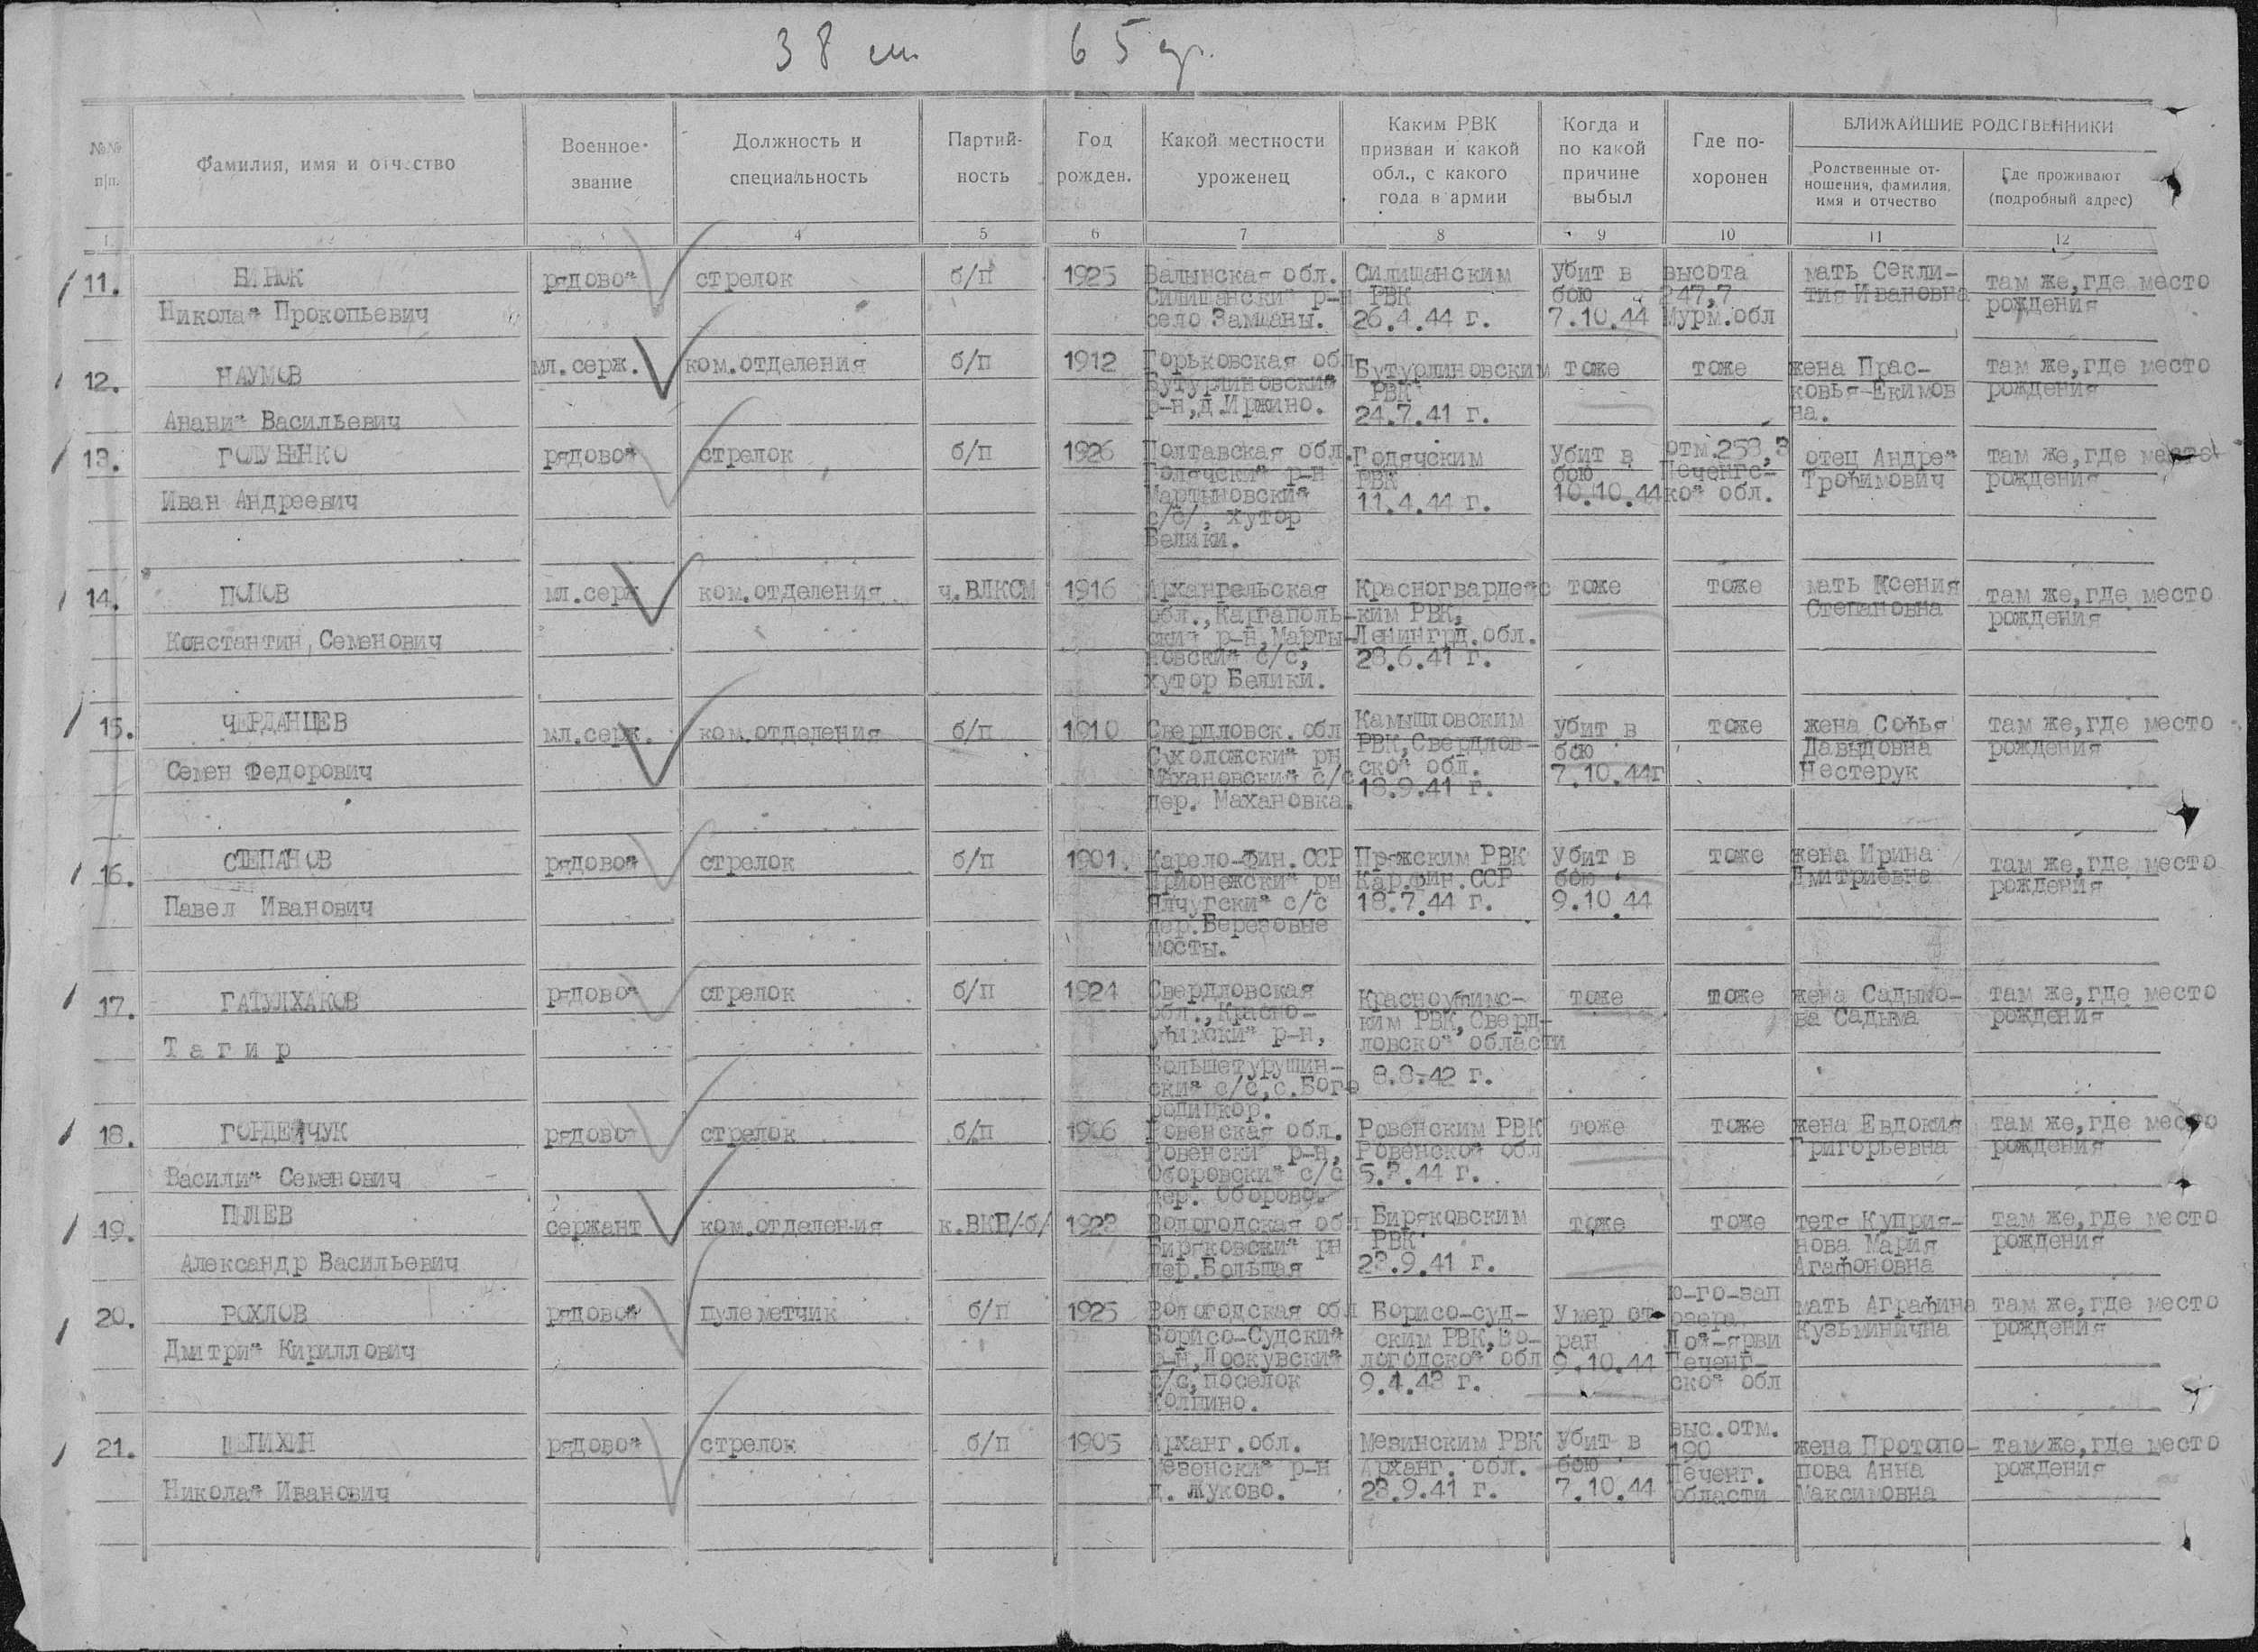 38 сп 65 др.
№№ п/п.
Фамилия, имя и отчество
Военное звание
Должность и специальность
Партий-ность
Год рожден.
Какой местности уроженец
Каким РВК призван и какой обл., с какого года в армии
Когда и по какой причине выбыл
Где по-хоронен
БЛИЖАЙШИЕ РОДСТВЕННИКИ
Родственные от-ношения, фамилия, имя и отчество
Где проживают (подробный адрес)
1 2 3 4 5 6 7 8 9 10 11 12
11. БИНЮК рядовой стрелок б/п 1925 Валынская обл. Силищанским убит в высота мать Секли- там же, где место
Николай Прокопьевич Силищанский р-н РВК бою 247,7 тия Ивановна рождения
село Замшаны. 26.4.44 г. 7.10.44 Мурм.обл
12. НАУМОВ мл.серж. ком.отделения б/п 1912 Горьковская обл Бутурлиновским тоже тоже жена Прас- там же, где место
Бутурлиновский РВК ковья Екимов рождения
Ананий Васильевич р-н, д.Иржино. 24.7.41 г. на.
13. ГОЛУБЕНКО рядовой стрелок б/п 1926 Полтавская обл. Годячским убит в отм.258,3 отец Андрей там же, где место
Голячский р-н РВК бою Печенгс- Трофимович рождения
Иван Андреевич Мартыновский 11.4.44 г. 10.10.44 кой обл.
с/с/, хутор
Велики.
14. ПОПОВ мл.серж ком.отделения ч.ВЛКСМ 1916 Архангельская Красногвардейс тоже тоже мать Ксения там же, где место
обл., Каргаполь- ким РВК, Степановна рождения
Константин Семенович ский р-н, Марты- Ленингрд.обл.
новский с/с, 28.6.41 г.
хутор Белики.
15. ЧЕРДАНЦЕВ мл.серж. ком.отделения б/п 1910 Свердловск.обл Камышловским убит в тоже жена Софья там же, где место
Сухоложский рн РВК, Свердлов- бою Давыдовна рождения
Семен Федорович Махановский с/с ской обл. 7.10.44г Нестерук
дер. Махановка. 18.9.41 г.
16. СТЕПАНОВ рядовой стрелок б/п 1901. Карело-фин.ССР Пряжским РВК убит в тоже жена Ирина там же, где место
Прионежский рн Кар.фин.ССР бою Дмитриевна рождения
Павел Иванович с/с 18.7.44 г. 9.10.44
дер.Березовые
мосты.
17. ГАТУЛХАКОВ рядовой стрелок б/п 1924 Свердловская Красноуфимс- тоже тоже жена Садыко- там же, где место
обл., Красно- ким РВК, Сверд- ва Садыма рождения
Тагир уфимский р-н, ловской области
Большетурушин- 8.8.42 г.
ский с/с, с.Бого
родицкор.
18. ГОРДЕЙЧУК рядовой стрелок б/п 1906 Ровенская обл. Ровенским РВК тоже тоже жена Евдокия там же, где место
Ровенский р-н, Ровенской обл Григорьевна рождения
Василий Семенович Оборовский с/с .44 г.
дер. Оборово.
19. ПЫЛЕВ сержант ком.отделения к.ВКП/б/ 1923 Вологодская обл Биряковским тоже тоже тетя Куприя- там же, где место
Биряковский рн РВК нова Мария рождения
Александр Васильевич дер.Большая 23.9.41 г. Агафоновна
20. РОХЛОВ рядовой пулеметчик б/п 1925 Вологодская обл Борисо-суд- Умер от ю-го-зап мать Аграфина там же, где место
Борисо-Судский ским РВК, Во- ран озера Кузьминична рождения
Дмитрий Кириллович р-н, Лоскувский логодской обл 9.10.44 -ярви
с/с, поселок 9.4.43 г. Печенг-
Колпино. ской обл
21. ШЕПИХИН рядовой стрелок б/п 1905 Арханг.обл. Мезинским РВК убит в выс.отм. жена Протопо- там же, где место
Мезенский р-н Арханг. обл. бою 190 пова Анна рождения
Николай Иванович д. Жуково. 23.9.41 г. 7.10.44 Печенг. Максимовна
области